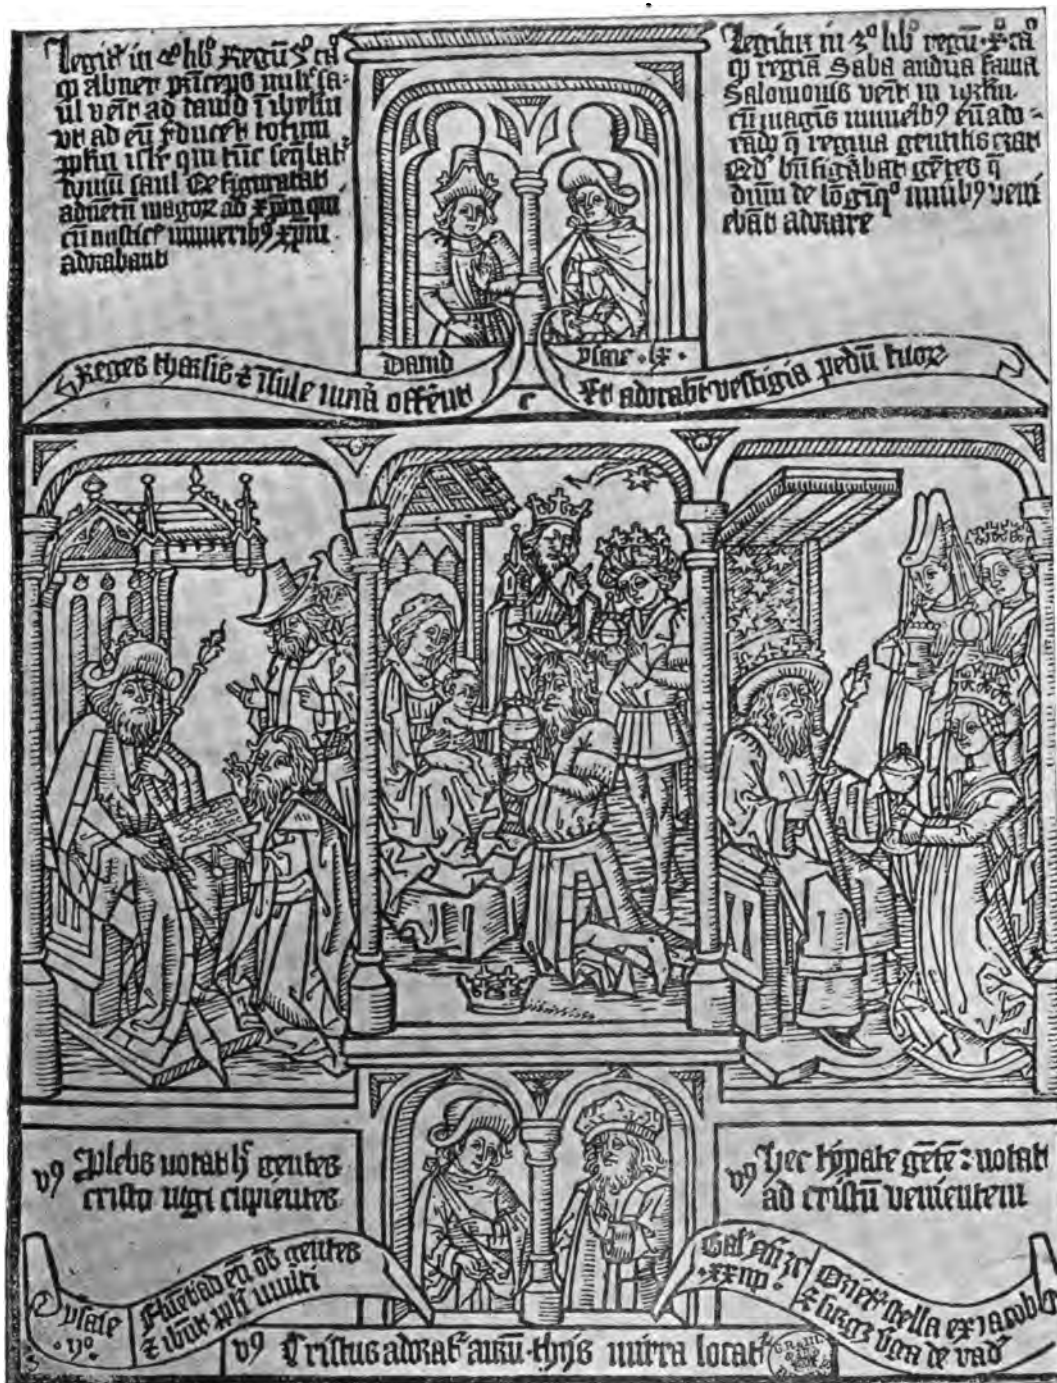 Legit᷑ in 2º libº Regū 3º cāº
ꝙ abner princeps milit᷑ sa-
ul venit ad dauid ī ihrlm
vt ad eū ꝛduceret totum
ppłm isrł qui tūc seq̄bat᷑
domū saul Qd figurabat
aduētū magoꝝ ad xp̄m qui
cū mistic᷑ muneribꝰ xp̄m
adorabant
Legitur in 3º libº regū · x · cāº
ꝙ regina Saba audita fama
Salomonis venit in ihrłm
cū magnis muneribꝰ eū ado-
rādo q̄ regina gentilis erat
Qd bn̄ figurabat gētes q̄
dnm̄ de lōginqº munibꝰ veni
ebāt adorare
Reges tharsis ⁊ īsule munā offerūt
Dauid
ysaie · lx ·
Et adorabūt vestigia pedū tuoꝝ
c
vꝰ Plebs notat hᷤ gentes
cristo iugi cupientes
vꝰ Hec typate gētē: notat
ad cristū venientem
ysaie
·ijº·
Fluēt ad eū oēs gentes
⁊ ibūt ppłi multi
·xxiiij·
Oriet᷑ stella ex iacob
⁊ surget v̄ga de
vꝰ Cristus adorat᷑ aurū · thus mirra locat᷑